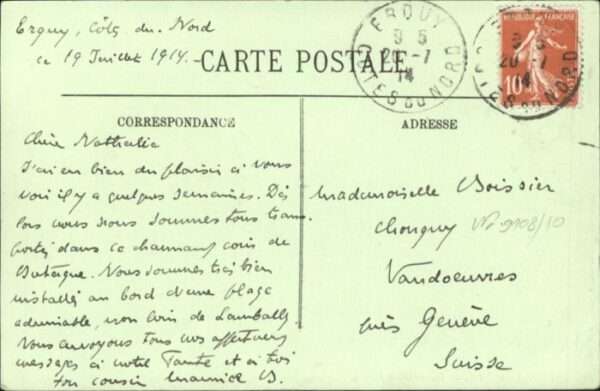 Erquy, Côtes du Nord
ce 19 Juillet 1914.
CARTE POSTALE
ERQUY
9 5
20 -7
14
CÔTES DU NORD
REPUBLIQUE FRANÇAISE
10
CORRESPONDANCE
ADRESSE
Chère Nathalie
J'ai eu bien du plaisir à vous
voir il y a quelques semaines. Dès
lors nous nous sommes tous trans-
portés dans ce charmant coin de
Bretagne. Nous sommes très bien
installés au bord d'une plage
admirable, non loin de Lamballe.
Nous envoyons tous nos affectueux
messages à notre Tante et à toi
ton cousin Maurice B.
Mademoiselle Boissier
Chougny
Vandoeuvres
près Genève
Suisse